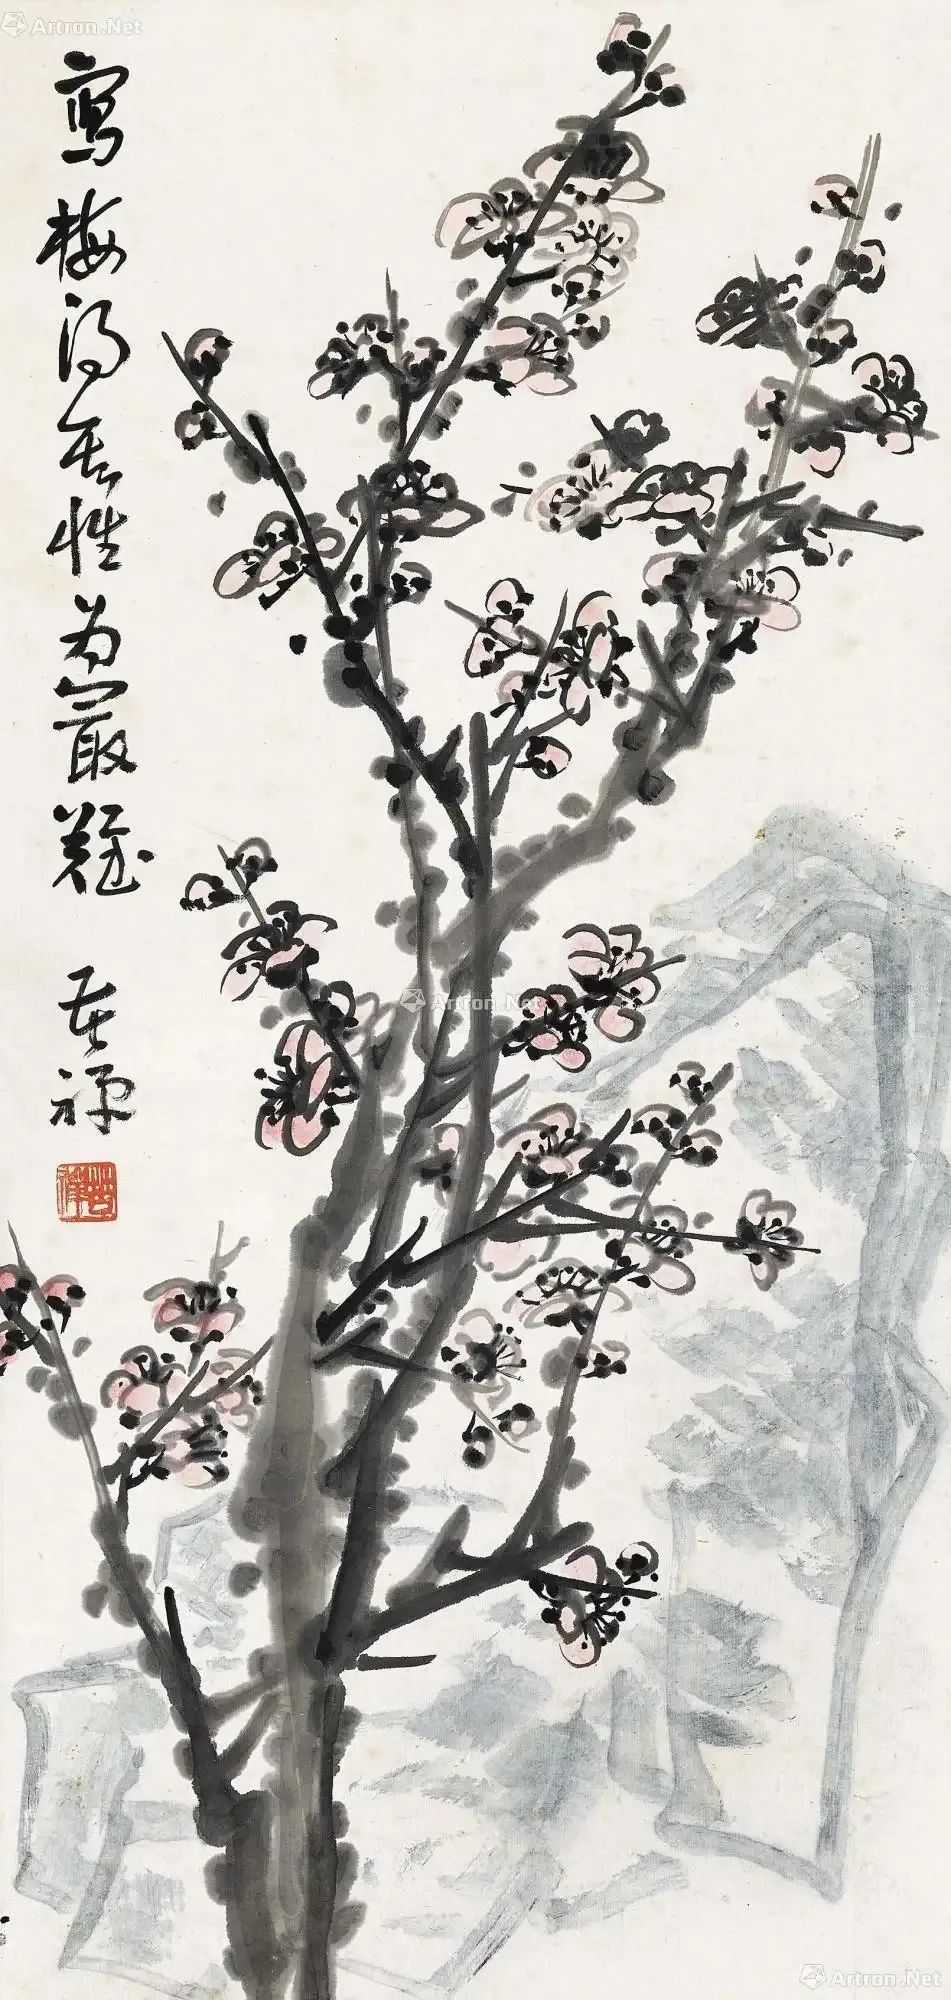 Artron.Net
寫梅得性為最難
苦禪
Artron.Net
Artron.Net